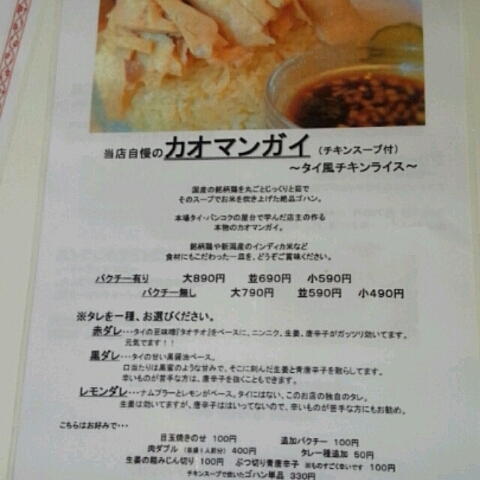 当店自慢のカオマンガイ(チキンスープ付)
～タイ風チキンライス～
国産の銘柄鶏を丸ごとじっくりと茹で
そのスープでお米を炊き上げた絶品ゴハン。
本場タイ・バンコクの屋台で学んだ店主の作る
本物のカオマンガイ。
銘柄鶏や新潟産のインディカ米など
食材にもこだわった一品を、どうぞご賞味ください。
パクチー有り 大890円 並690円 小590円
パクチー無し 大790円 並590円 小490円
※タレを一種、お選びください。
赤ダレ・・・タイの豆味噌『タオチオ』をベースに、ニンニク、生姜、唐辛子がガッツリ効いてます。
元気でます！！
黒ダレ・・・タイの甘い黒醤油ベース。
口当たりは黒蜜のような甘みで、そこに刻んだ生姜と青唐辛子を散らしてます。
辛いものが苦手な方は、唐辛子を抜くこともできます。
レモンダレ・・・ナムプラーとレモンがベース。タイにはない、このお店の独自のタレ。
生姜は効いてますが、唐辛子ははいってないので、辛いものが苦手な方にもお勧め。
こちらはお好みで・・・
目玉焼きのせ 100円 追加パクチー 100円
肉ダブル(普通1人前分) 400円 タレ一種追加 50円
生姜の粗みじん切り 100円 ぶつ切り青唐辛子 ※ものすごく辛いです 100円
チキンスープで炊いたゴハン単品 330円